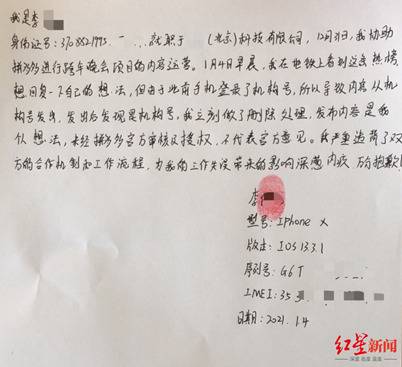 我是李
身份证号：3708521995 就职于 (北京)科技有限公司，12月31日，我协助
拼多多进行跨年晚会项目的内容运营。1月4日早晨，我在地铁上看到这条热搜
想回复一下自己的想法，但由于此前手机登录了机构号，所以导致内容从机
构号发出，发出后发现是机构号，我立刻做了删除处理，发布内容是我
个人想法，未经拼多多官方审核及授权，不代表官方意见。我严重违背了双
方的合作机制和工作流程，为我的工作失误带来的影响深感内疚
的抱歉
李
型号：IPhone X
版本：IOS 13.3.1
序列号：G6T
IMEI：35
日期：2021.1.4
红星新闻
深度 态度 温度